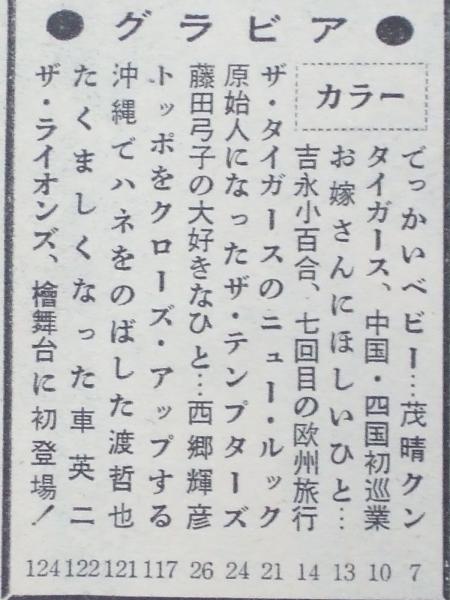 ●グラビア●
カラー
でっかいベビー…茂晴クン 7
タイガース、中国・四国初巡業 10
お嫁さんにほしいひと… 13
吉永小百合、七回目の欧州旅行 14
ザ・タイガースのニュー・ルック 21
原始人になったザ・テンプターズ 24
藤田弓子の大好きなひと…西郷輝彦 26
トッポをクローズ・アップする 117
沖縄でハネをのばした渡哲也 121
たくましくなった車英二 122
ザ・ライオンズ、檜舞台に初登場！ 124